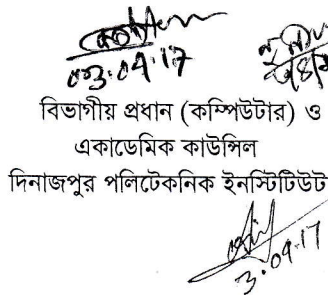 03.04.17
বিভাগীয় প্রধান (কম্পিউটার) ও
একাডেমিক কাউন্সিল
দিনাজপুর পলিটেকনিক ইনস্টিটিউট
3.04.17